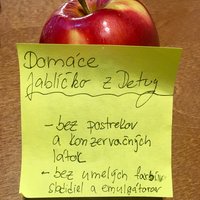 Domáce
Jabĺčko z Detvy
- bez postrekov
a konzervačných
látok
- bez umelých farbív
sladidiel a emulgátorov